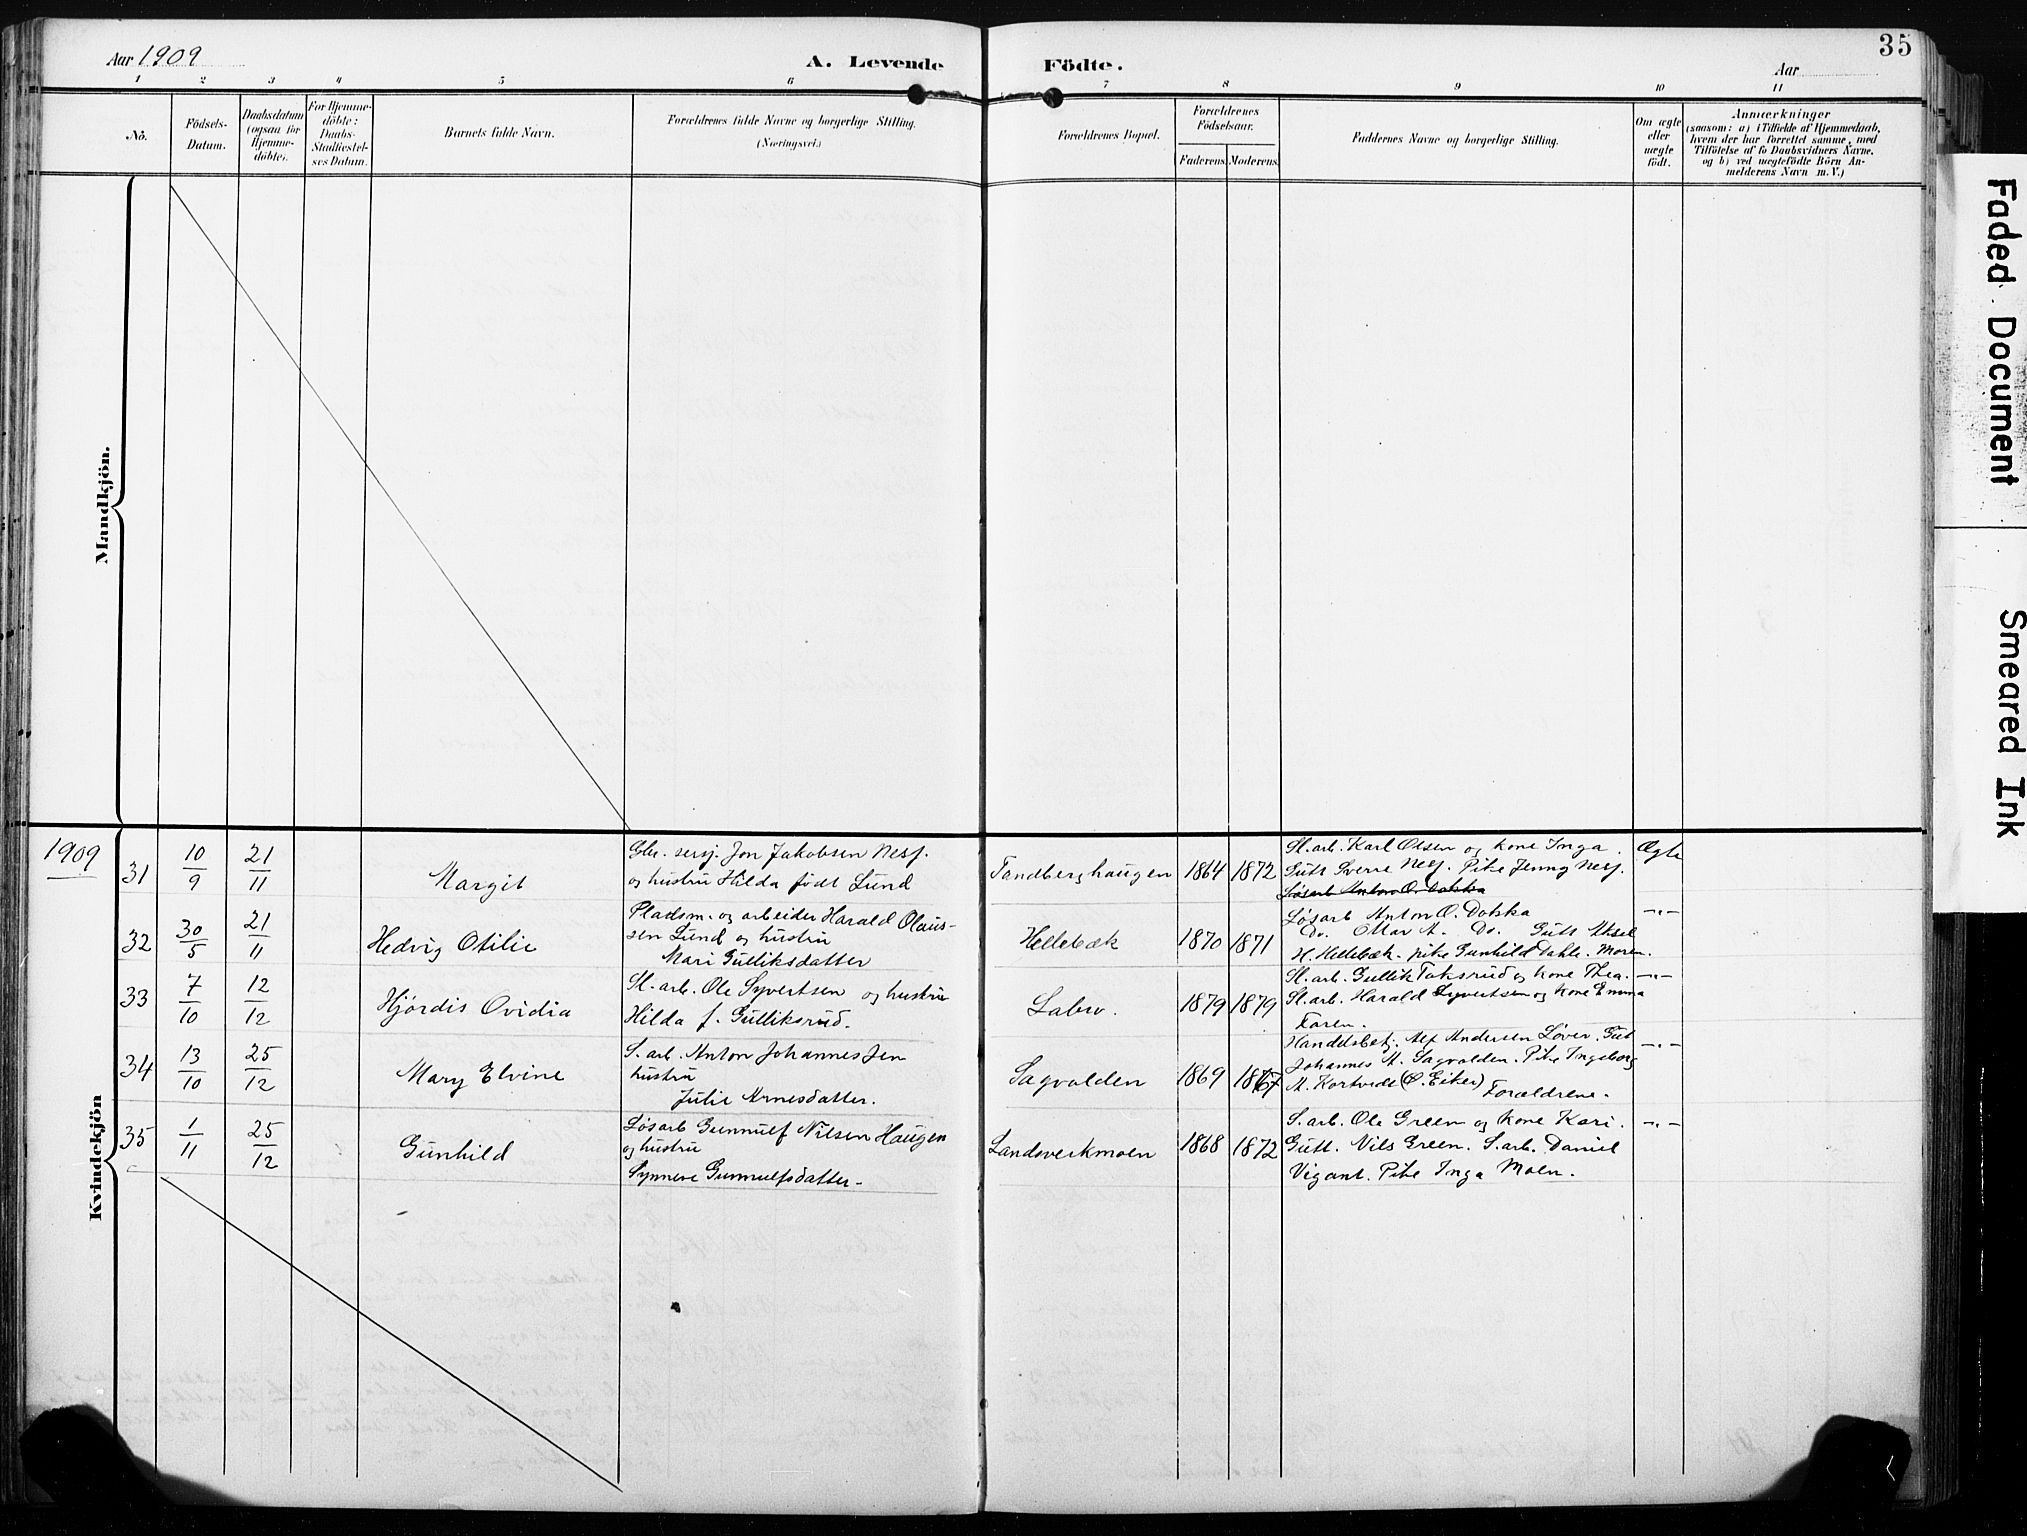 35
Aar 1909
A. Levende Födte.
Aar
1 2 3 4 5 6 7 8 9 10 11
No.
Födsels-
Datum.
Daabsdatum
(ogsaa for
Hjemme-
döbte).
For Hjemme-
döbte:
Daabs-
Stadfæstel-
ses Datum.
Barnets fulde Navn.
Forældrenes fulde Navne og borgerlige Stilling.
(Næringsvei.)
Forældrenes Bopæl.
Forældrenes
Födselsaar.
Faderens.
Moderens.
Faddernes Navne og borgerlige Stilling.
Om ægte
eller
uægte
födt.
Anmærkninger
(saasom: a) i Tilfælde af Hjemmedaab,
hvem der har forrettet samme, med
Tilföielse af to Daabsvidners Navne,
og b) ved uægtefödte Börn An-
melderens Navn m. V.)
Mandkjön.
Kvindekjön
1909
31
10/9
21/11
Margit
Jon Jakobsen Nesf.
og hustru Hilda født Lund
Tandberghaugen
1864
1872
Sl. arb. Karl Olsen og kone Inga.
Gutt Sverre Nesf. Pike Jenny Nesf.
Løsarb Anton O. Dokka
Ægte
32
30/5
21/11
Hedvig Otilie
Pladsm. og arbeider Harald Olaus-
sen Lund og hustru
Mari Gulliksdatter
Hellebæk
1870
1871
Løsarb Anton O. Dokka
Do. Olav A. Do. Gutt Aksel
H. Hellebæk. pike Gunhild Dahle. Moren.
-"-
33
7/10
12/12
Hjørdis Ovidia
Sl. arb. Ole Syvertsen og hustru
Hilda f. Gulliksrud.
Labro.
1879
1879
Sl. arb. Gullik Taksrud og kone Thea.
Sl. arb. Harald Syvertsen og kone Emma
Faren.
-"-
34
13/10
25/12
Mary Elvine
S. arb. Anton Johannesen
hustru
Julie Arnesdatter.
Sagvolden
1869
1867
Handelsbetj. Alf Andersen Løver. Gut
Johannes A. Sagvolden. Pike Ingeborg
A. Kortvedt (Ø. Eiker) Forældrene.
-"-
35
1/11
25/12
Gunhild
Løsarb Gunnulf Nilsen Haugen
og hustru
Synneve Gunnulfsdatter-
Landsverkmoen
1868
1872
S. arb. Ole Green og kone Kari.
Gutt. Nils Green. S. arb. Daniel
Vigant. Pike Inga Moen.
-"-
Faded Document
Smeared Ink